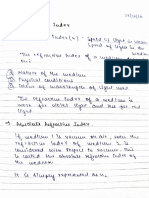 Index
Index(n) - Speed of light in vacuum
Speed of light in the
The refractive index of a medium
① Nature of the medium
② Physical conditions
③ Colour or wavelength of light used
The refractive index of a medium is
more for violet light and less for red
light
→ Absolute Refractive Index :
If medium 1 is vacuum or air, then the
refractive index of medium 2 is
considered with respect to vacuum. This
is called the absolute refractive index of
the medium.
It is simply represented as n₂